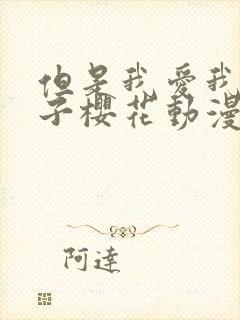 但是我愛我
子櫻花動漫
阿達